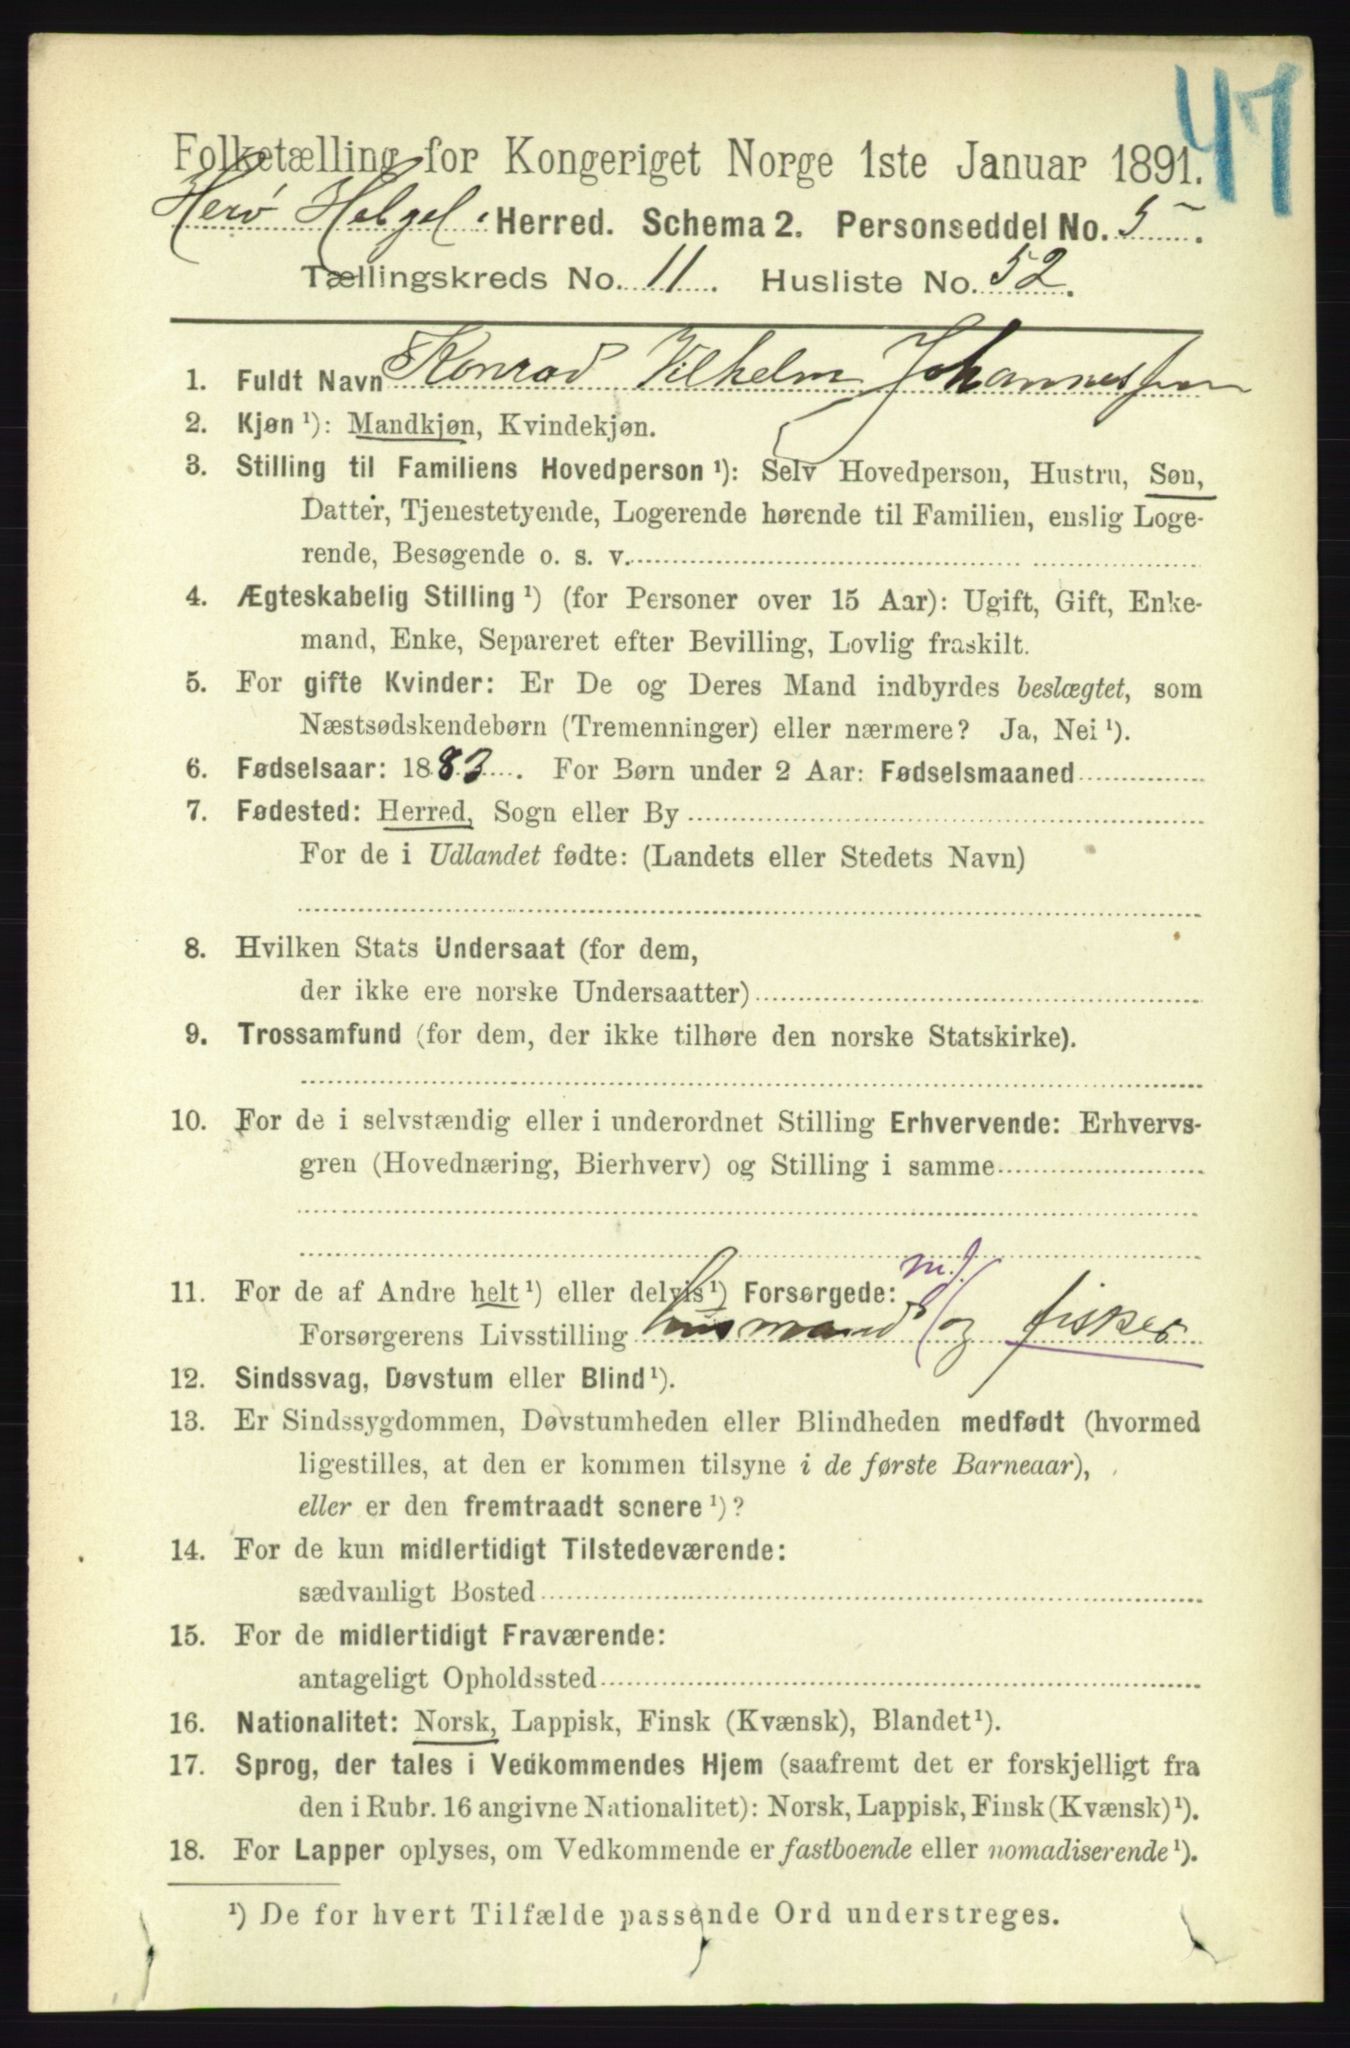 47
Folketælling for Kongeriget Norge 1ste Januar 1891.
Herø Helgel. Herred. Schema 2. Personseddel No. 5.
Tællingskreds No. 11. Husliste No. 52.
1. Fuldt Navn Konrad Vilhelm Johannessen
2. Kjøn ¹): Mandkjøn, Kvindekjøn.
3. Stilling til Familiens Hovedperson ¹): Selv Hovedperson, Hustru, Søn,
Datter, Tjenestetyende, Logerende hørende til Familien, enslig Loge-
rende, Besøgende o. s. v.
4. Ægteskabelig Stilling ¹) (for Personer over 15 Aar): Ugift, Gift, Enke-
mand, Enke, Separeret efter Bevilling, Lovlig fraskilt.
5. For gifte Kvinder: Er De og Deres Mand indbyrdes beslægtet, som
Næstsødskendebørn (Tremenninger) eller nærmere? Ja, Nei ¹).
6. Fødselsaar: 1883. For Børn under 2 Aar: Fødselsmaaned
7. Fødested: Herred, Sogn eller By
For de i Udlandet fødte: (Landets eller Stedets Navn)
8. Hvilken Stats Undersaat (for dem,
der ikke ere norske Undersaatter)
9. Trossamfund (for dem, der ikke tilhøre den norske Statskirke).
10. For de i selvstændig eller i underordnet Stilling Erhvervende: Erhvervs-
gren (Hovednæring, Bierhverv) og Stilling i samme
11. For de af Andre helt ¹) eller delvis ¹) Forsørgede: m.j.
Forsørgerens Livsstilling husmand og fisker
12. Sindssvag, Døvstum eller Blind ¹).
13. Er Sindssygdommen, Døvstumheden eller Blindheden medfødt (hvormed
ligestilles, at den er kommen tilsyne i de første Barneaar),
eller er den fremtraadt senere ¹)?
14. For de kun midlertidigt Tilstedeværende:
sædvanligt Bosted
15. For de midlertidigt Fraværende:
antageligt Opholdssted
16. Nationalitet: Norsk, Lappisk, Finsk (Kvænsk), Blandet ¹).
17. Sprog, der tales i Vedkommendes Hjem (saafremt det er forskjelligt fra
den i Rubr. 16 angivne Nationalitet): Norsk, Lappisk, Finsk (Kvænsk) ¹).
18. For Lapper oplyses, om Vedkommende er fastboende eller nomadiserende ¹).
¹) De for hvert Tilfælde passende Ord understreges.